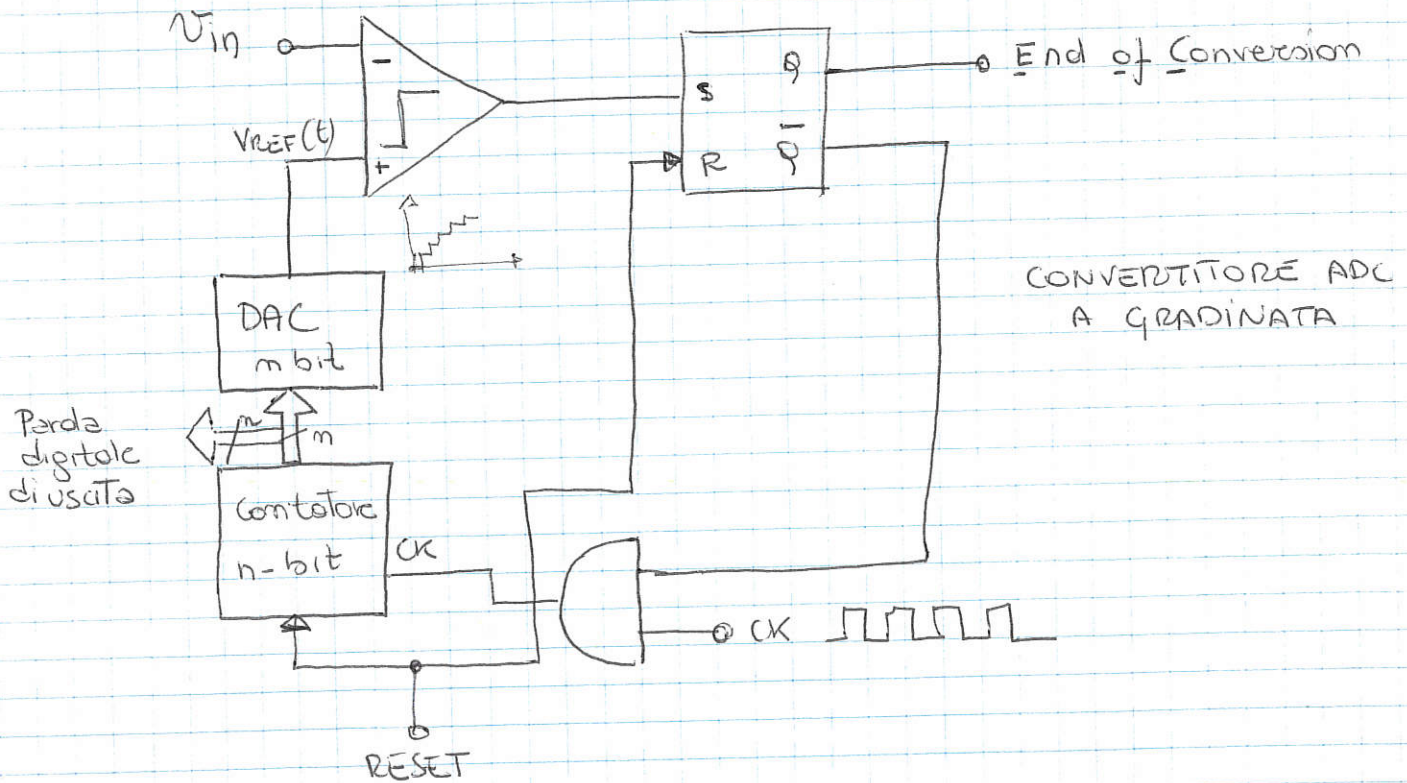 Vin
−
VREF(t)
+
S
R
Q
Q̅
End of Conversion
CONVERTITORE ADC
A GRADINATA
DAC
n bit
n
n
Parola
digitale
di uscita
Contatore
n-bit
CK
CK
RESET